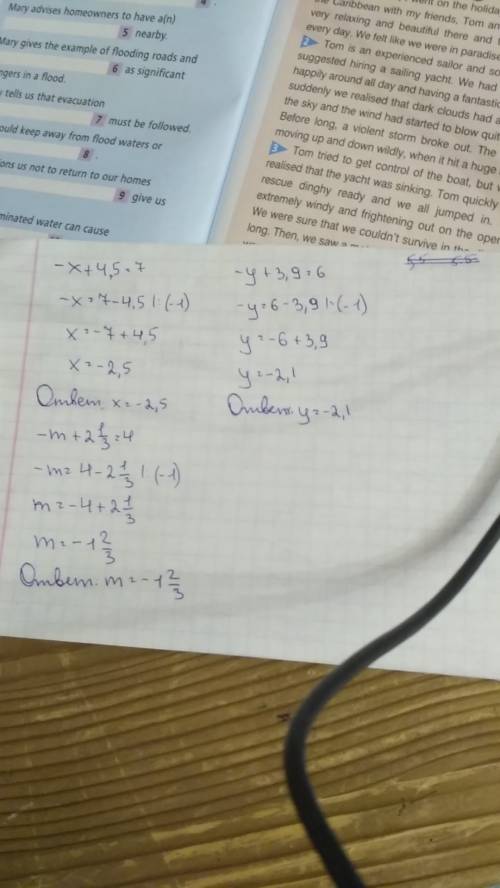 4.
Mary advises homeowners to have a(n)
5 nearby.
Mary gives the example of flooding roads and
6 as significant
in a flood.
tells us that evacuation
7 must be followed.
keep away from flood waters or
8.
us not to return to our homes
9 give us
water can cause
the Caribbean with my friends, Tom
very relaxing and beautiful there and
every day. We felt like we were in paradise
2 Tom is an experienced sailor and
suggested hiring a sailing yacht. We had
happily around all day and having a fantastic
suddenly we realised that dark clouds had
the sky and the wind had started to blow
Before long, a violent storm broke out. The
moving up and down wildly, when it hit a huge
3 Tom tried to get control of the boat, but
realised that the yacht was sinking. Tom quickly
rescue dinghy ready and we all jumped in.
extremely windy and frightening out on the
We were sure that we couldn't survive in
long. Then, we saw a
-x+4,5=7
-x=7-4,5 | ·(-1)
x=-7+4,5
x=-2,5
Ответ: x=-2,5
-m+2 1/3=4
-m=4-2 1/3 | ·(-1)
m=-4+2 1/3
m=-1 2/3
Ответ: m=-1 2/3
-y+3,9=6
-y=6-3,9 | ·(-1)
y=-6+3,9
y=-2,1
Ответ: y=-2,1